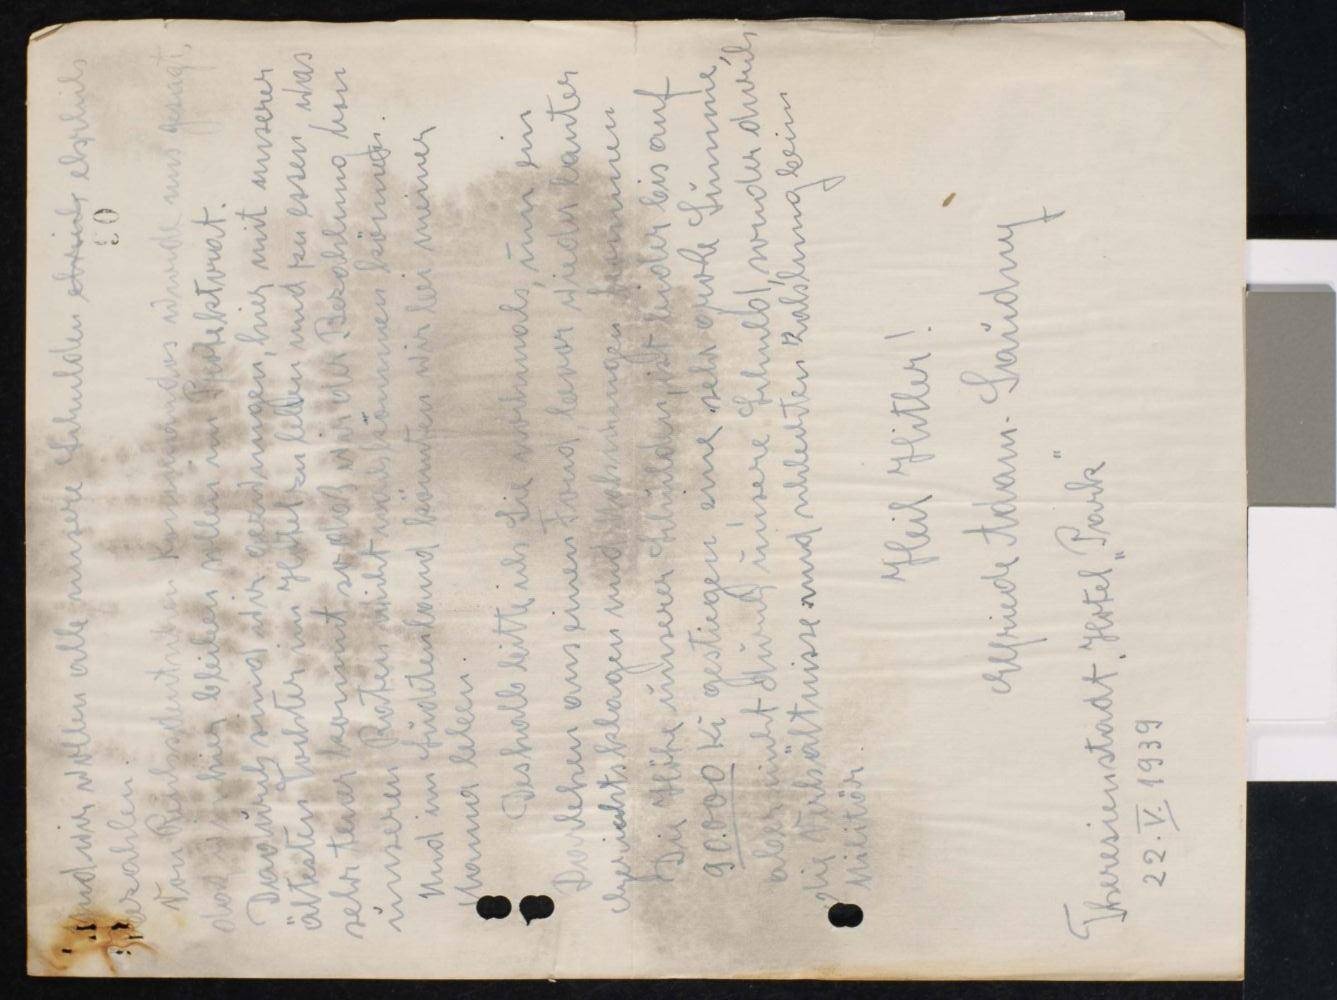 und wir wollen alle unsere Schulden ehrlich
bezahlen.
Von Reichsdeutschen Kommandos wurde uns gesagt,
daß wir hier bleiben sollen im Protektorat.
Dadurch sind wir gezwungen, hier mit unserer
ältesten Tochter im Hotel zu leben und zu essen was
sehr teuer kommt sodaß wir der Bezahlung von
unseren Raten nicht nachkommen können.
Und im Sudetenland könnten wir bei meiner
Mama leben.
Deshalb bitte ich Sie nochmals, um ein
Darlehen aus einem Fond, bevor wieder lauter
Gerichtsklagen und Mahnungen kommen
Die Höhe unserer Schulden, ist leider bis auf
90.000 Kč gestiegen eine sehr große Summe,
aber nicht durch unsere Schuld, sonder durch
die Verhältnisse und schlechten Zahlung beim
Militär.
Heil Hitler!
Elfriede Adam-
Theresienstadt, Hotel „Park"
22. V. 1939
03